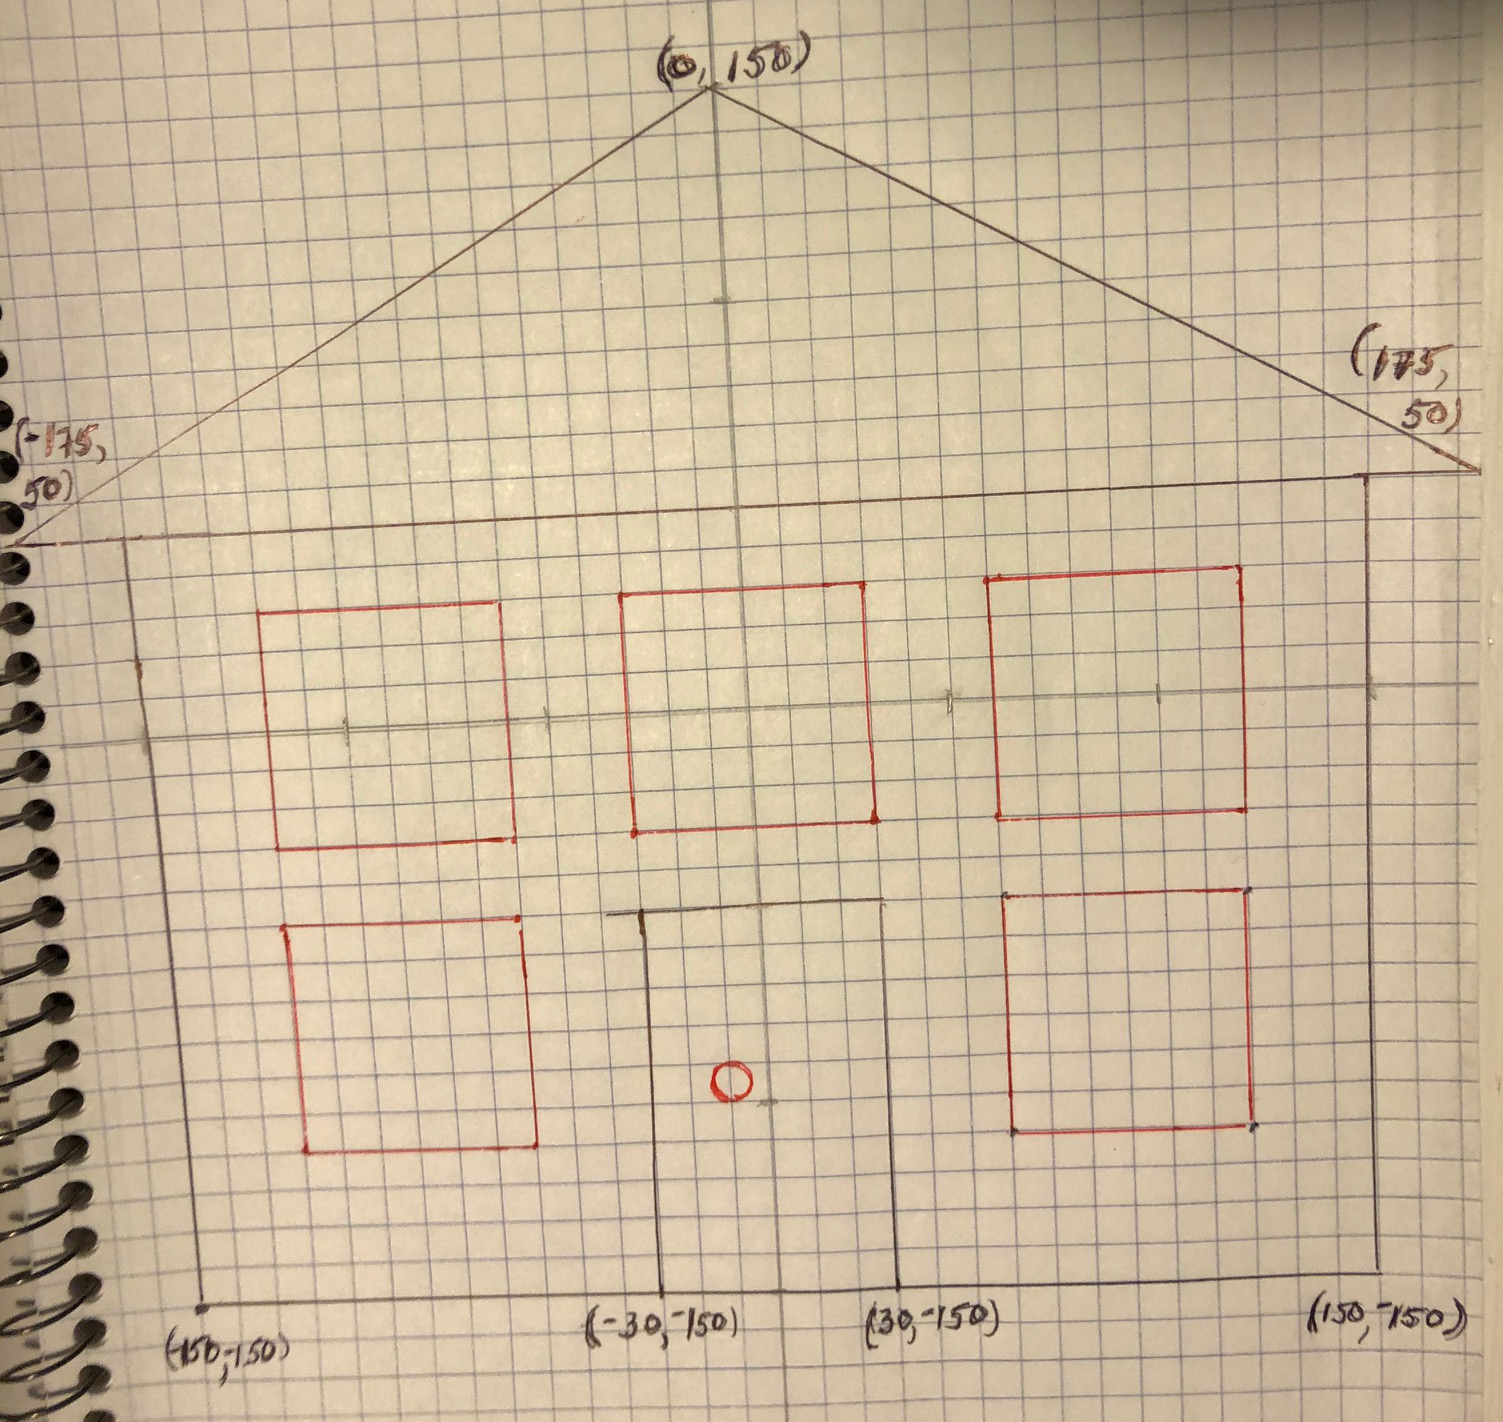 (0, 150)
(175,
50)
(-175,
50)
(-30,-150)
(30,-150)
(150,-150)
(-150,-150)